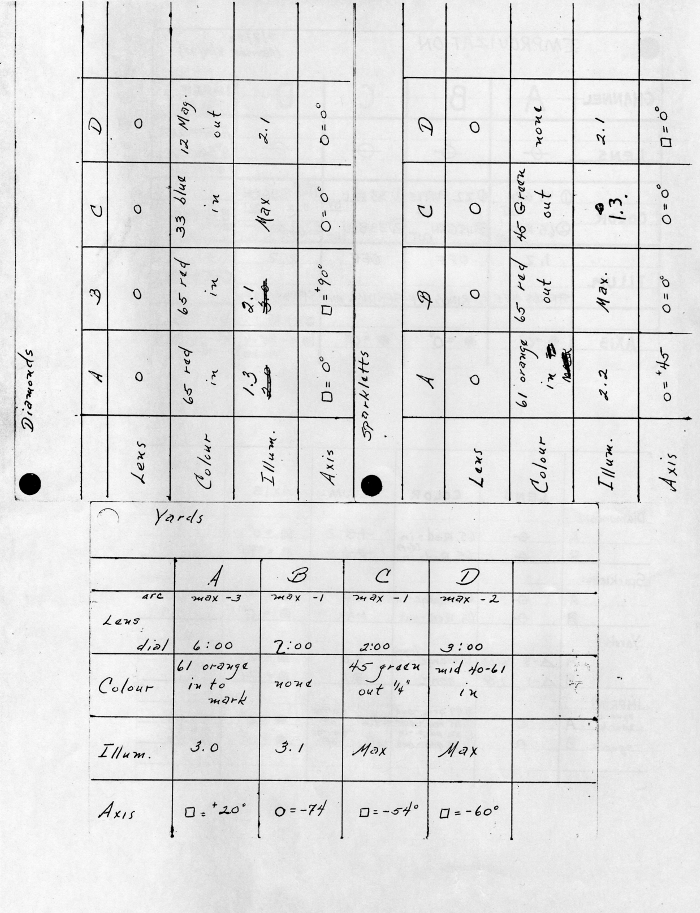 Diamonds
A B C D
Lens O O O O
Colour 65 red in 65 red in 33 blue in 12 Mag. out
Illum. 1.3 2.1 Max 2.1
Axis □=0° □=+90° O=0° O=0°
Sparkletts
A B C D
Lens O O O O
Colour 61 orange in 65 red out 45 Green out none
Illum. 2.2 Max. 1.3. 2.1
Axis O=+45 O=0° O=0° □=0°
Yards
A B C D
arc max -3 max -1 max -1 max -2
Lens
dial 6:00 2:00 9:00
61 orange 45 green mid 40-61
Colour in to none out 1/4" in
mark
Illum. 3.0 3.1 Max Max
Axis □=+20° O=-74 □=-54° □=-60°